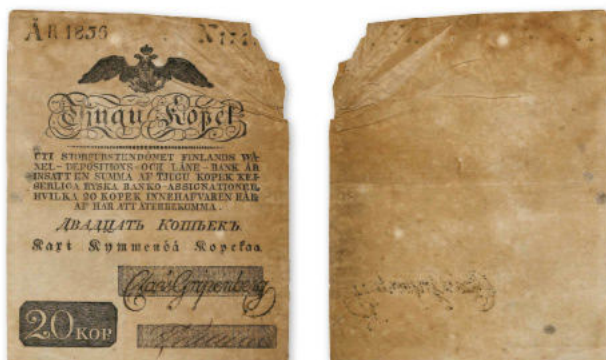 År 1836
Tjugu Kopek
UTI STORFURSTENDÖMET FINLANDS WÄ-
XEL-DEPOSITIONS-OCH LÅNE-BANK ÄR
INSATT EN SUMMA AF TJUGU KOPEK KEJ-
SERLIGA RYSKA BANKO-ASSIGNATIONER,
HVILKA 20 KOPEK INNEHAFVAREN HÄR-
AF HAR ATT ÅTERBEKOMMA.
ДВАДЦАТЬ КОПѢЕКЪ.
Kaxi Kymmendä Kopekaa.
Claes Gripenberg
20 KOP